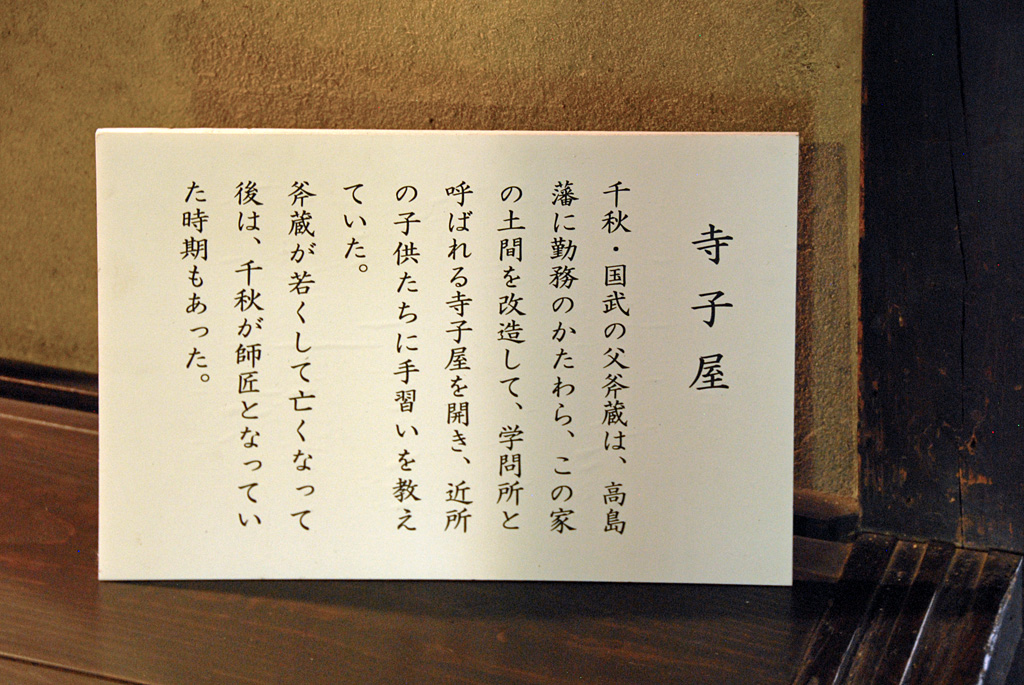 寺子屋
千秋・国武の父斧蔵は、高島
藩に勤務のかたわら、この家
の土間を改造して、学問所と
呼ばれる寺子屋を開き、近所
の子供たちに手習いを教え
ていた。
斧蔵が若くして亡くなって
後は、千秋が師匠となってい
た時期もあった。